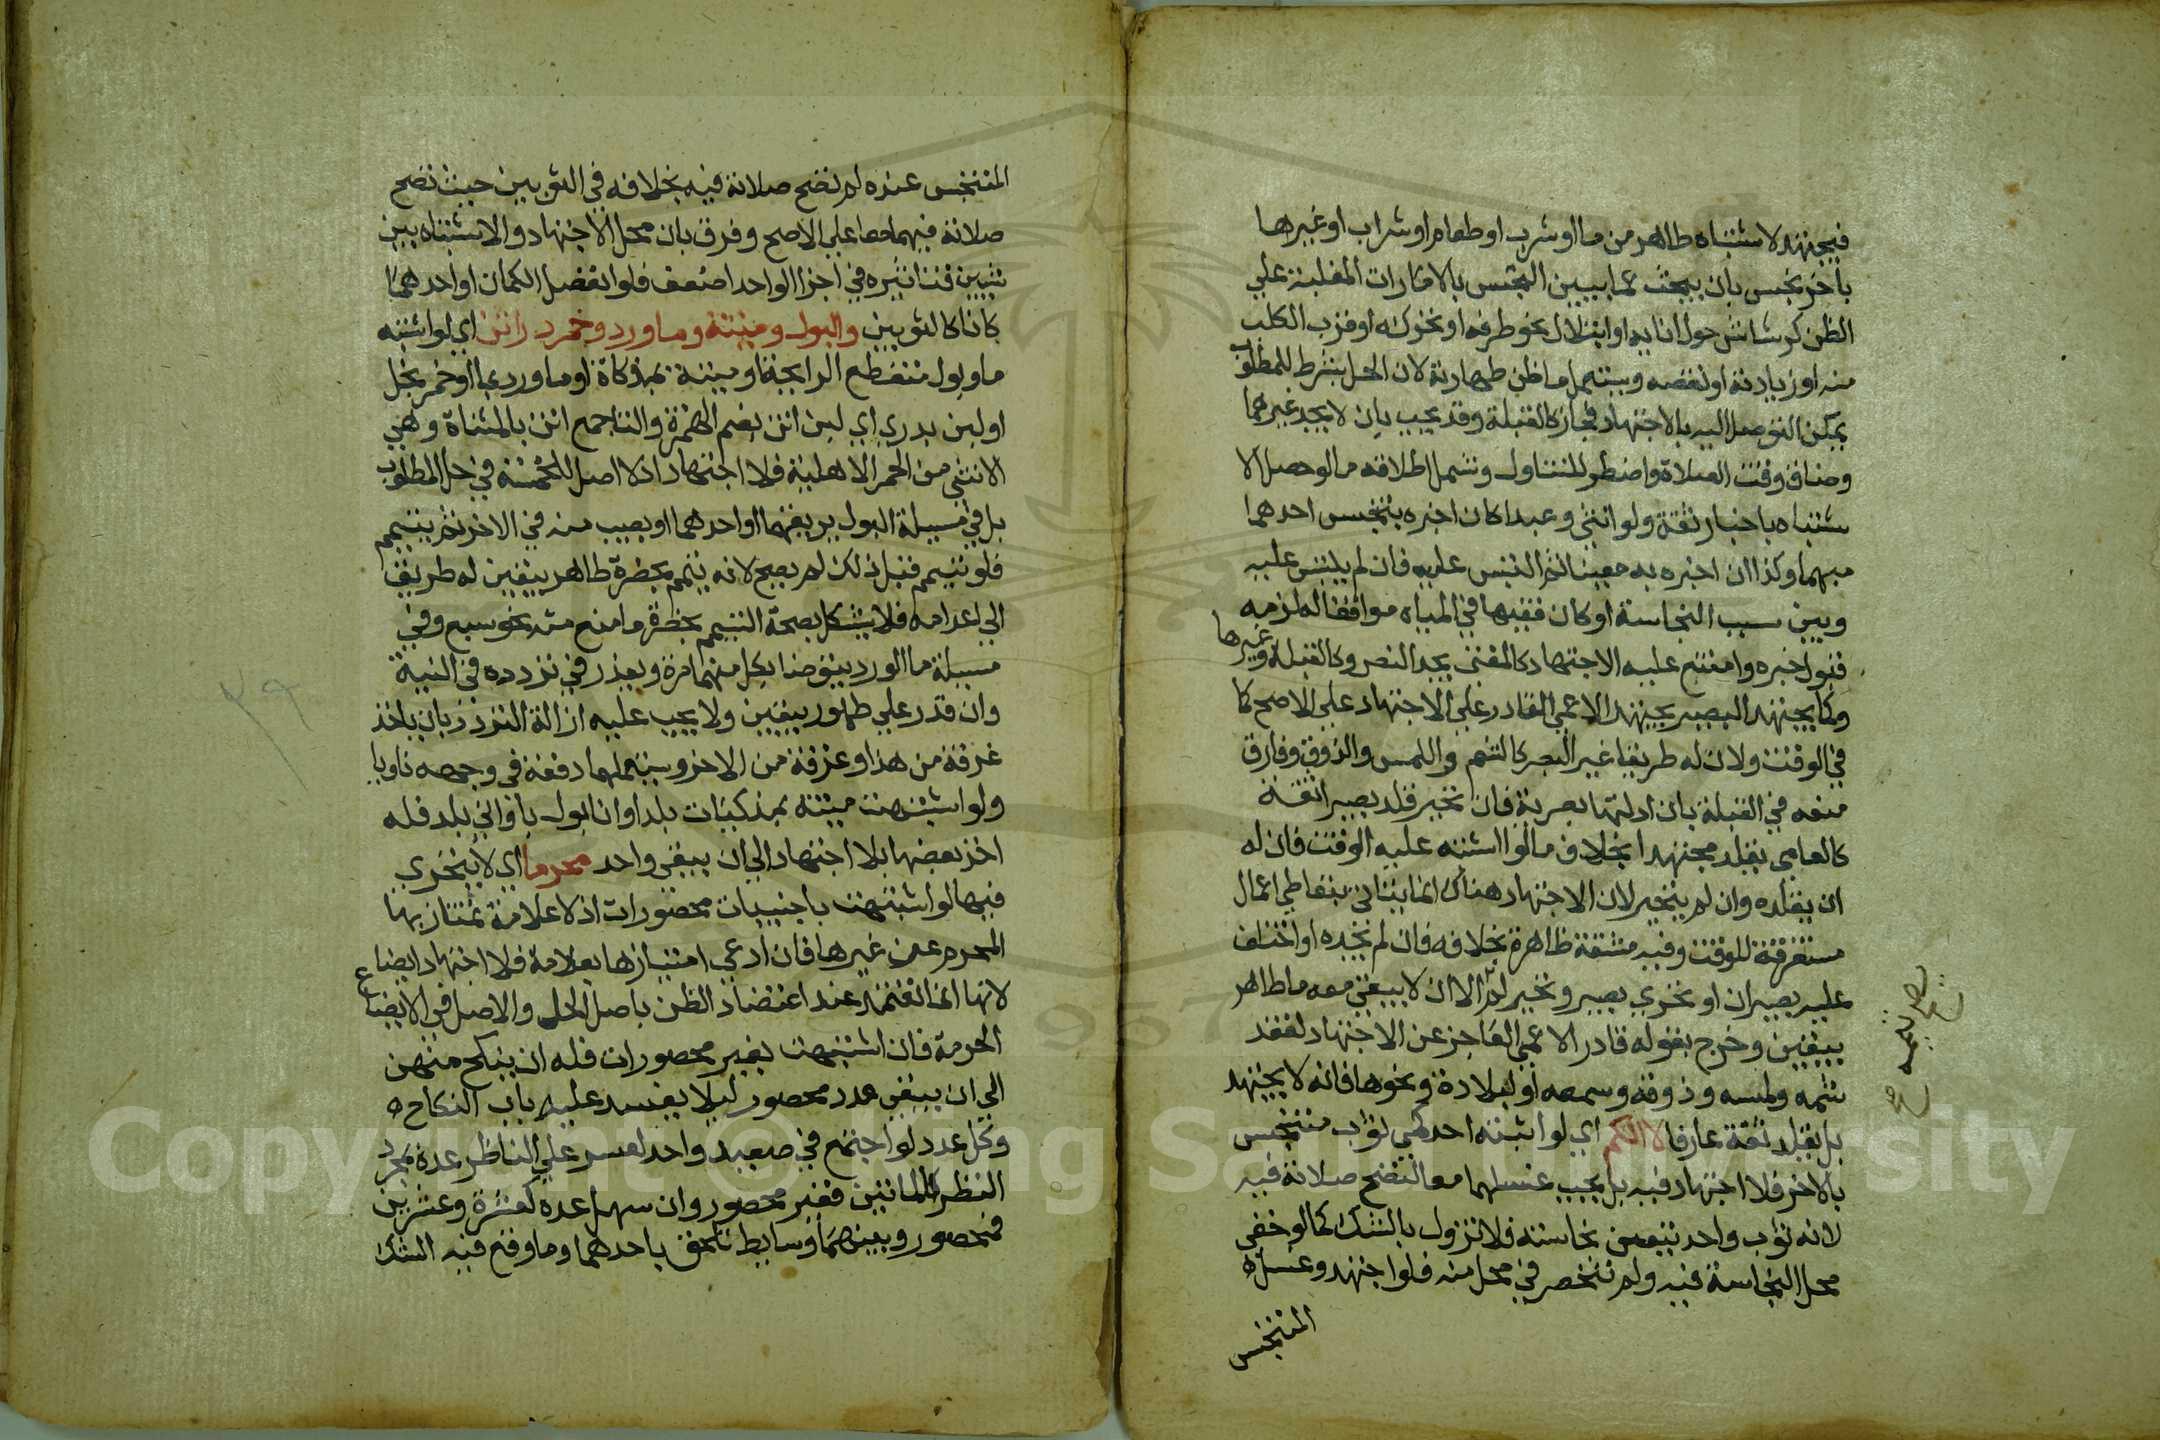 فيجتهد لاشتباه طاهر من ما او شرب او طعام او شراب او غيرها
باخر نجس بان يبحث عما يبين النجس بالامارات المغلبة علي
الظن كرشاش حول انايه او ابتلال نحو طرفه او تحركه او قرب الكلب
منه او زيادته او نقصه ويستعمل ما ظن طهارته لان الحل شرط للمطلوب
يمكن التوصل اليه بالاجتهاد فجاز كالقبلة وقد يجب بان لا يجد غيرهما
وضاق وقت الصلاة واضطر للتناول وشمل اطلاقه ما لو حصل الا
شتباه باخبار ثقة ولو انثي وعبدا كان اخبره بتنجس احدهما
مبهما وكذا ان اخبره به معينا ثم التبس عليه فان لم يلتبس عليه
وبين سبب النجاسة او كان فقيها في المياه موافقا له لزمه
قبول خبره وامتنع عليه الاجتهاد كالمفتي يجد النص وكالقبلة وغيرها
وكما يجتهد البصير يجتهد الاعمي القادر علي الاجتهاد علي الاصح كما
في الوقت ولان له طريقا غير البصر كالشم واللمس والذوق وفارق
منعه في القبلة بان ادلتها بصرية فان تحير قلد بصيرا ثقة
كالعامي يقلد مجتهدا بخلاف ما لو اشتبه عليه الوقت فان له
ان يقلده وان لم يتحير لان الاجتهاد هناك انما يتاتي بتعاطي اعمال
مستغرقة للوقت وفيه مشقة ظاهرة بخلافه فان لم يجده او اختلف
عليه بصيران او تحري بصير وتحير الا ان لا يبقي معه ما طاهر
بيقين وخرج بقوله قادر الاعمي العاجز عن الاجتهاد لفقد
شمه ولمسه وذوقه وسمعه او لبلادة ونحوها فانه لا يجتهد
بل يقلد ثقة عارفا لا الكم اي لو اشتبه احد كمي ثوب متنجس
بالاخر فلا اجتهاد فيه بل يجب غسلهما معا لتصح صلاته فيه
لانه ثوب واحد تيقن نجاسته فلا تزول بالشك كما لو خفي
محل النجاسة فيه ولم تنحصر في محل منه فلو اجتهد وغسل
المتنجس
المتنجس عنده لم تصح صلاته فيه بخلافه في الثوبين حيث تصح
صلاته فيهما معا علي الاصح وفرق بان محل الاجتهاد والاشتباه بين
شيين فتاثيره في اجزا الواحد اضعف فلو انفصل الكمان او احدهما
كانا كالثوبين والبول وميتة وما ورد وخمر در اتن اي لو اشتبه
ما وبول منقطع الرايحة او ميتة بمذكاة او ما وردي او خمر بخل
او لبن بدر اي لبن اتن بضم الهمزة والتا جمع اتن بالمثناة وهي
الانثي من الحمر الاهلية فلا اجتهاد اذ لا اصل للخمسة في حل المطلوب
بل في مسيلة البول يريقهما او احدهما او يصب منه في الاخر ثم يتيمم
فلو تيمم قبل ذلك لم يصح لانه تيمم بحضرة طاهر بيقين له طريق
الي اعدامه فلا يشكل بصحة التيمم بحضرة ما منع منه نحو سبع وفي
مسيلة ما الورد يتوضا بكل منهما مرة ويعذر في تردده في النية
وان قدر علي طهور بيقين ولا يجب عليه ازالة التردد بان ياخذ
غرفة من هذا وغرفة من الاخر ويستعملهما دفعة في وجهه ناويا
ولو اشتبهت ميتة بمذكيات بلد او انا بول باواني بلد فله
اخذ بعضها بلا اجتهاد الي ان يبقي واحد محرما اي لا يتحري
فيها لو اشتبهت باجنبيات محصورات اذ لا علامة تمتاز بها
المحرم عن غيرها فان ادعي امتيازها بعلامة فلا اجتهاد ايضا
لانها انما تعتمد عند اعتضاد الظن باصل الحل والاصل في الابضاع
الحرمة فان اشتبهت بغير محصورات فله ان ينكح منهن
الي ان يبقي عدد محصور ليلا يفسد عليه باب النكاح
وكل عدد لو اجتمع في صعيد واحد لعسر علي الناظر عده بمجرد
النظر فغير محصور وان سهل عده كعشرة وعشرين
فمحصور وبينهما وسايط تلحق باحدهما وما وقع فيه الشك
Copyright © King Saud University
1957